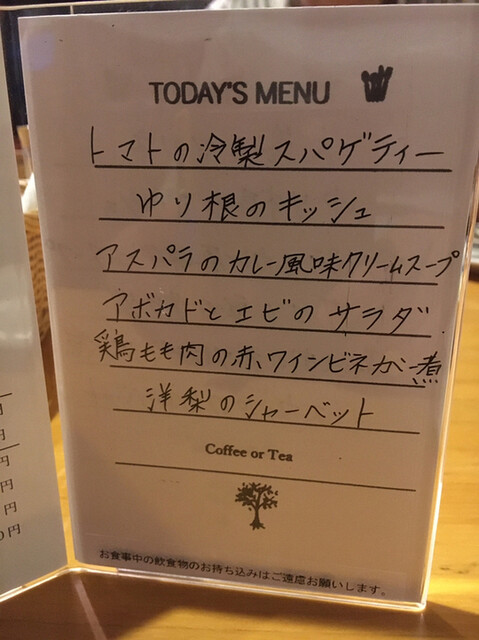 TODAY'S MENU
トマトの冷製スパゲティー
ゆり根のキッシュ
アスパラのカレー風味クリームスープ
アボカドとエビのサラダ
鶏もも肉の赤ワインビネガー煮
洋梨のシャーベット
Coffee or Tea
お食事中の飲食物のお持ち込みはご遠慮お願いします。
円
円
円
円
円
0円